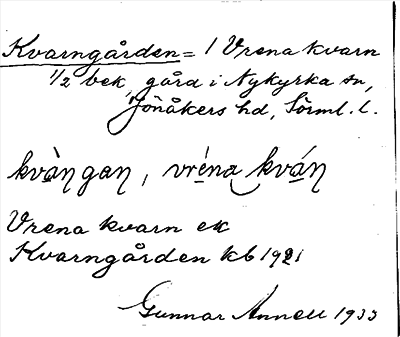 Kvarngården = 1 Vrena kvarn
1/2 bek, gård i Nykyrka sn,
Jönåkers hd, Sörml. l.
kvàŋgaɳ, vréna kváɳ
Vrena kvarn ek
Kvarngården kb 1921
Gunnar Annell 1933